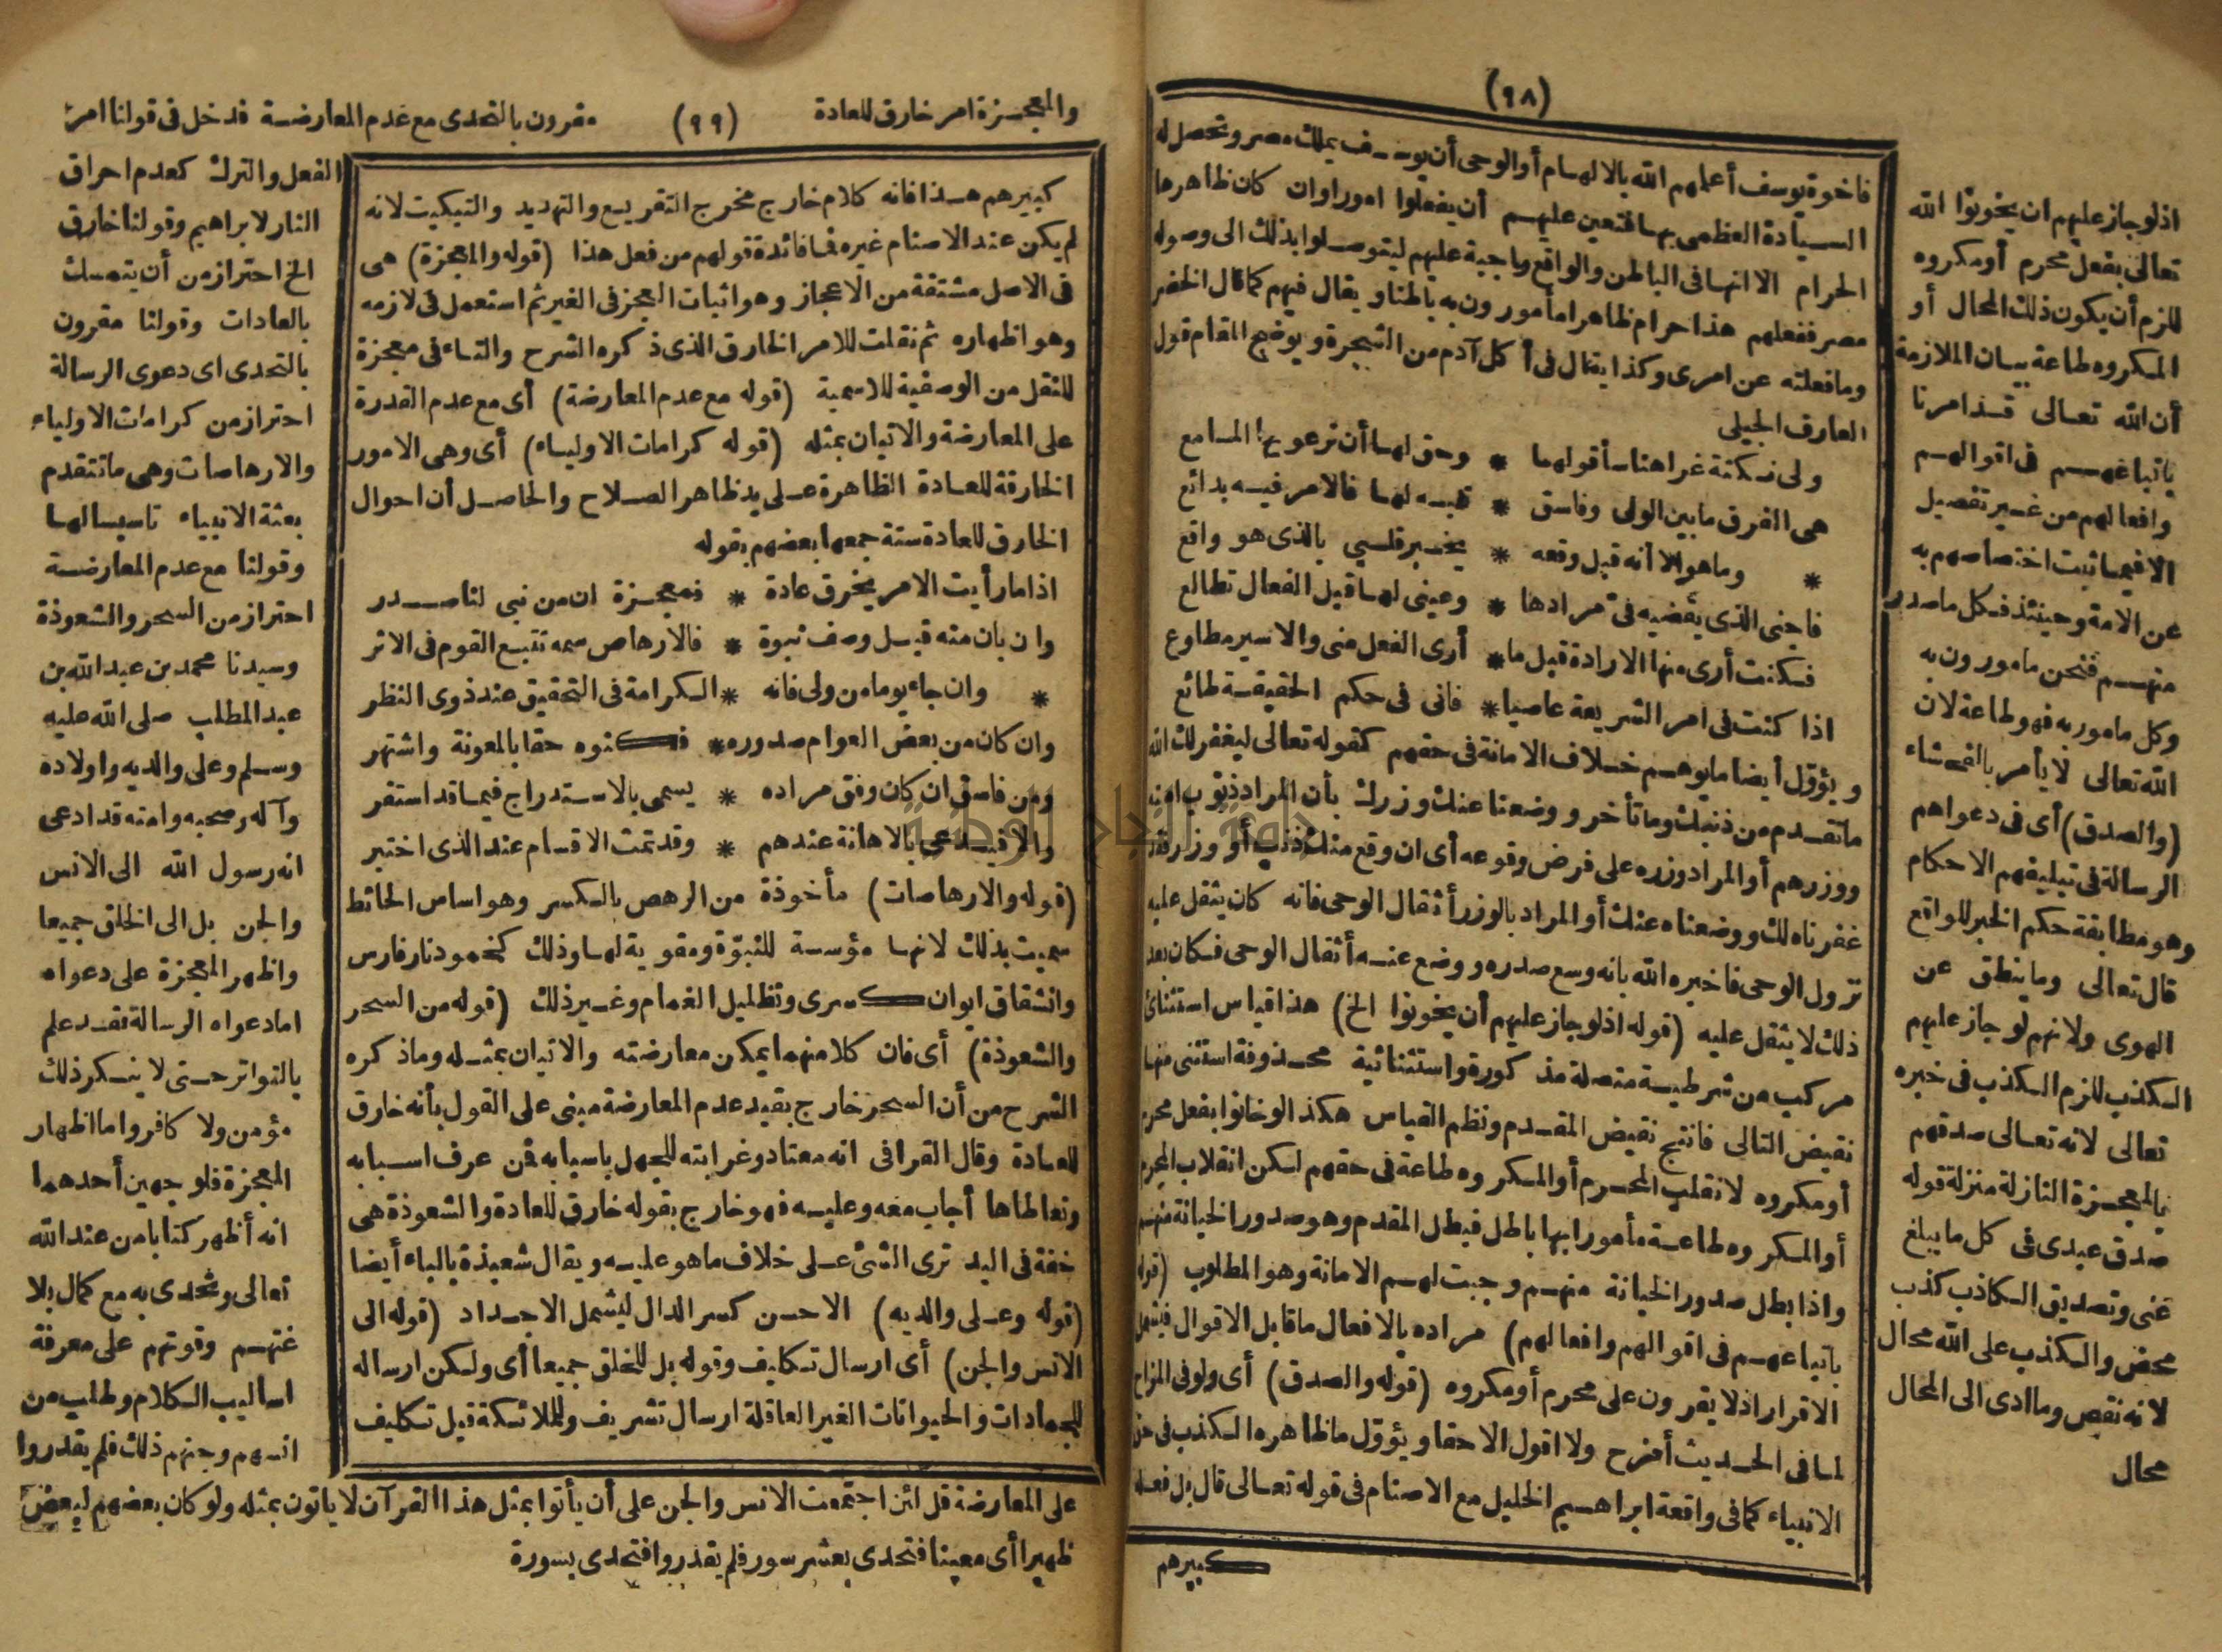 (٩٨)
فاخوة يوسف أعلمهم الله بالالهام أو الوحى أن يوسف يملك مصر وتحصل له
السيادة العظمى بها فتعين عليهم أن يفعلوا امورا وان كان ظاهرها
الحرام الا انها فى الباطن والواقع واجبة عليهم ليتوصلوا بذلك الى وصوله
مصر ففعلهم هذا حرام ظاهرا مأمورون به باطنا ويقال فيهم كما قال الخضر
وما فعلته عن امرى وكذا يقال فى أكل آدم من الشجرة ويوضح المقام قول
العارف الجيلى
ولى نكتة غرا هنا سأقولها * وحق لها أن ترعويها المسامع
هى الفرق ما بين الولى وفاسق * تنبه لها فالامر فيه بدائع
* وما هو الا أنه قبل وقعه * يخبر قلبي بالذى هو واقع
فاجنى الذى يقضيه فى مرادها * وعينى لها قبل الفعال تطالع
فكنت أرى منها الارادة قبل ما * أرى الفعل منى والاسير مطاوع
اذا كنت فى امر الشريعة عاصيا * فانى فى حكم الحقيقة طائع
ويؤول أيضا ما يوهم خلاف الامانة فى حقهم كقوله تعالى ليغفر لك الله
ما تقدم من ذنبك وما تأخر ووضعنا عنك وزرك بأن المراد ذنوب امته
ووزرهم أو المراد وزره على فرض وقوعه أى ان وقع منك ذنب أو وزر فقد
غفرناه لك ووضعناه عنك أو المراد بالوزر أثقال الوحى فانه كان يثقل عليه
نزول الوحى فاخبره الله بانه وسع صدره ووضع عنه أثقال الوحى فكان بعد
ذلك لا يثقل عليه (قوله اذ لو جاز عليهم أن يخونوا الخ) هذا قياس استثنائى
مركب من شرطية متصلة مذكورة واستثنائية محذوفة استثنى منها
نقيض التالى فانتج نقيض المقدم ونظم القياس هكذا لو خانوا بفعل محرم
أو مكروه لانقلب المحرم أو المكروه طاعة فى حقهم لكن انقلاب المحرم
أو المكروه طاعة مأمورا بها باطل فبطل المقدم وهو صدور الخيانة منهم
واذا بطل صدور الخيانة منهم وجبت لهم الامانة وهو المطلوب (قوله
باتباعهم فى اقوالهم وافعالهم) مراده بالافعال ما قابل الاقوال فيشمل
الاقرار اذ لا يقرون على محرم أو مكروه (قوله والصدق) أى ولو فى المزاح
لما فى الحديث أمزح ولا اقول الا حقا ويؤول ما ظاهره الكذب فى حق
الانبياء كما فى واقعة ابراهيم الخليل مع الاصنام فى قوله تعالى قال بل فعله
كبيرهم
اذ لو جاز عليهم ان يخونوا الله
تعالى بفعل محرم أو مكروه
للزم أن يكون ذلك المحال أو
المكروه طاعة بيان الملازمة
أن الله تعالى قد امرنا
باتباعهم فى اقوالهم
وافعالهم من غير تفصيل
الا فيما ثبت اختصاصهم به
عن الامة وحينئذ فكل ما صدر
منهم فنحن مامورون به
وكل مامور به فهو طاعة لان
الله تعالى لا يأمر بالفحشاء
(والصدق) أى فى دعواهم
الرسالة فى تبليغهم الاحكام
وهو مطابقة حكم الخبر للواقع
قال تعالى وما ينطق عن
الهوى ولانهم لو جاز عليهم
الكذب للزم الكذب فى خبره
تعالى لانه تعالى صدقهم
بالمعجزة النازلة منزلة قوله
صدق عبدى فى كل ما يبلغ
عنى وتصديق الكاذب كذب
محض والكذب على الله محال
لانه نقص وما ادى الى المحال
محال
والمعجزة امر خارق للعادة (٩٩) مقرون بالتحدى مع عدم المعارضة فدخل فى قولنا امر
كبيرهم هذا فانه كلام خارج مخرج التقريع والتهديد والتبكيت لانه
لم يكن عند الاصنام غيره فما فائدة قولهم من فعل هذا (قوله والمعجزة) هى
فى الاصل مشتقة من الاعجاز وهو اثبات العجز فى الغير ثم استعمل فى لازمه
وهو اظهاره ثم نقلت للامر الخارق الذى ذكره الشرح والتاء فى معجزة
للنقل من الوصفية للاسمية (قوله مع عدم المعارضة) أى مع عدم القدرة
على المعارضة والاتيان بمثله (قوله كرامات الاولياء) أى وهى الامور
الخارقة للعادة الظاهرة على يد ظاهر الصلاح والحاصل أن احوال
الخارق للعادة ستة جمعها بعضهم بقوله
اذا ما رأيت الامر يخرق عادة * فمعجزة ان من نبى لنا صدر
وان بان منه قبل وصف نبوة * فالارهاص سمه تتبع القوم فى الاثر
* وان جاء يوما من ولى فانه * الكرامة فى التحقيق عند ذوى النظر
وان كان من بعض العوام صدوره * فكنوه حقا بالمعونة واشتهر
ومن فاسق ان كان وفق مراده * يسمى بالاستدراج فيما قد استقر
والا فيدعى بالاهانة عندهم * وقد تمت الاقسام عند الذى اختبر
(قوله والارهاصات) مأخوذة من الرهص بالكسر وهو اساس الحائط
سميت بذلك لانها مؤسسة للنبوّة ومقوية لها وذلك كخمود نار فارس
وانشقاق ايوان كسرى وتظليل الغمام وغير ذلك (قوله من السحر
والشعوذة) أى فان كلا منهما يمكن معارضته والاتيان بمثله وما ذكره
الشرح من أن السحر خارج بقيد عدم المعارضة مبنى على القول بأنه خارق
للعادة وقال القرافى انه معتاد وغرابته للجهل باسبابه فمن عرف اسبابه
وتعاطاها أجاب معه وعليه فهو خارج بقوله خارق للعادة والشعوذة هى
خفة فى اليد ترى الشئ على خلاف ما هو عليه ويقال شعبذة بالباء أيضا
(قوله وعلى والديه) الاحسن كسر الدال ليشمل الاجداد (قوله الى
الانس والجن) أى ارسال تكليف وقوله بل للخلق جميعا أى ولكن ارساله
للجمادات والحيوانات الغير العاقلة ارسال تشريف وللملائكة قيل تكليف
الفعل والترك كعدم احراق
النار لابراهيم وقولنا خارق
الخ احتراز من أن يتمسك
بالعادات وقولنا مقرون
بالتحدى اى دعوى الرسالة
احتراز من كرامات الاولياء
والارهاصات وهى ما تتقدم
بعثة الانبياء تاسيسا لها
وقولنا مع عدم المعارضة
احتراز من السحر والشعوذة
وسيدنا محمد بن عبد الله بن
عبد المطلب صلى الله عليه
وسلم وعلى والديه واولاده
وآله وصحبه وامته قد ادعى
انه رسول الله الى الانس
والجن بل الى الخلق جميعا
واظهر المعجزة على دعواه
اما دعواه الرسالة فقد علم
بالتواتر حتى لا ينكر ذلك
مؤمن ولا كافر واما اظهار
المعجزة فلوجهين أحدهما
انه أظهر كتابا من عند الله
تعالى وتحدى به مع كمال بلا
غتهم وقوتهم على معرفة
اساليب الكلام وطلب من
انسهم وجنهم ذلك فلم يقدروا
على المعارضة قل لئن اجتمعت الانس والجن على أن يأتوا بمثل هذا القرآن لا ياتون بمثله ولو كان بعضهم لبعض
ظهيرا أى معينا فتحدى بعشر سور فلم يقدروا فتحدى بسورة